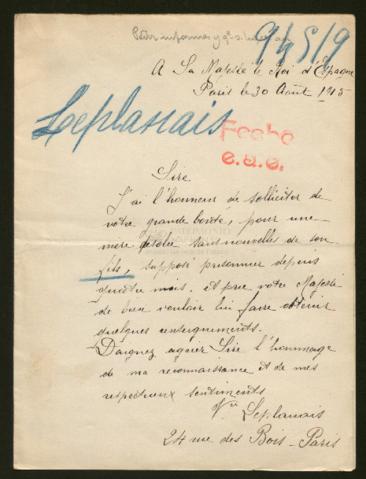 Pedir informes y qe. si
945/9
A Sa Majesté le Roi d'Espagne
Paris le 30 Août 1915
Leplanais
Fecho
e.a.e.
Sire
J'ai l'honneur de solliciter de
votre grande bonté, pour une
mère désolée sans nouvelles de son
fils, supposé prisonnier depuis
quatre mois. et prie votre Majesté
de bien vouloir lui faire obtenir
quelques renseignements.
Daignez agréer Sire l'hommage
de ma reconnaissance et de mes
respectueux sentiments
Vve Leplanais
24 rue des Bois - Paris